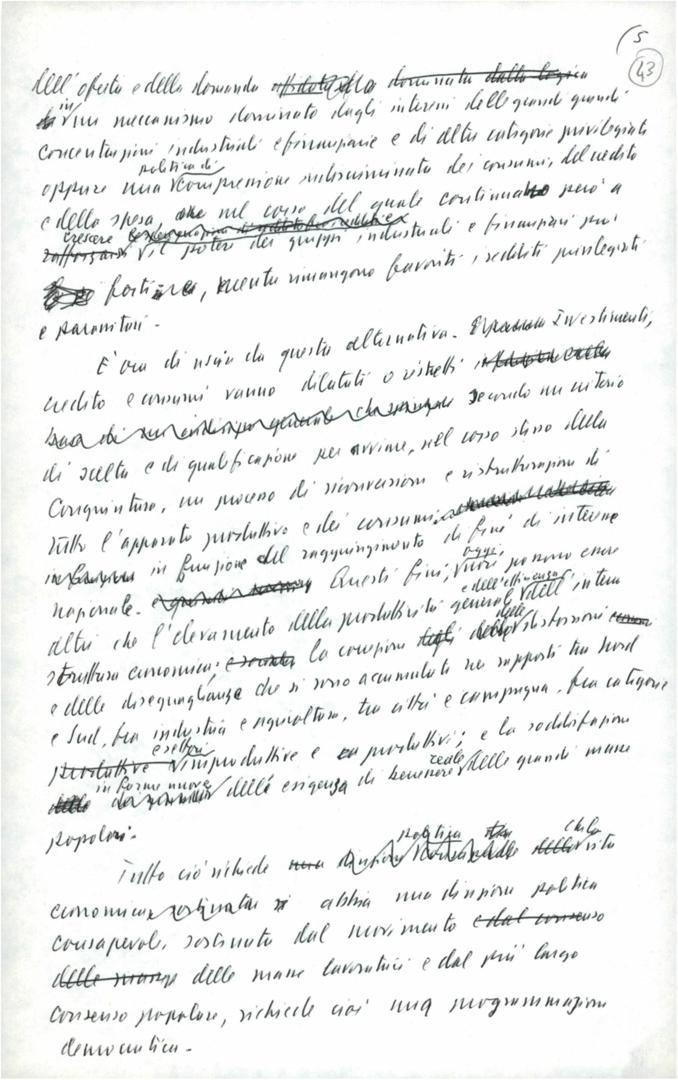 5
43
dell'offerta e della domanda affidata alla dominata dalla logica
in un meccanismo dominato dagli interessi delle grandi grandi
concentrazioni industriali e finanziarie e di altre categorie privilegiate
politica di
oppure una compressione indiscriminata dei consumi, del credito
e della spesa, che nel corso del quale continuano però a
crescere
rafforzarsi il potere dei gruppi industriali e finanziari più
forti, mentre rimangono favoriti i redditi privilegiati
e parassitari.
È ora di uscire da questa alternativa. Investimenti,
credito e consumi vanno dilatati o ristretti
secondo un criterio
di scelta e di qualificazione per avviare, nel corso stesso della
congiuntura, un processo di riconversione e ristrutturazione di
tutto l'apparato produttivo e dei consumi
in funzione del raggiungimento di fini di interesse
oggi,
nazionale. Questi fini, non possono essere
e dell'efficienza
altri che l'elevamento della produttività generale dell'intera
delle
struttura economica; la correzione degli delle distorsioni
e delle diseguaglianze che si sono accumulate nei rapporti tra Nord
e Sud, fra industria e agricoltura, tra città e campagna, fra categorie
e settori
produttive improduttive e produttivi; e la soddisfazione
in forme nuove reale
delle esigenze di benessere delle grandi masse
popolari.
politica che la
Tutto ciò richiede una direzione della vita
economica sostenuta si abbia una direzione politica
consapevole, sostenuta dal movimento e dal consenso
delle masse delle masse lavoratrici e dal più largo
consenso popolare, richiede cioè una programmazione
democratica.